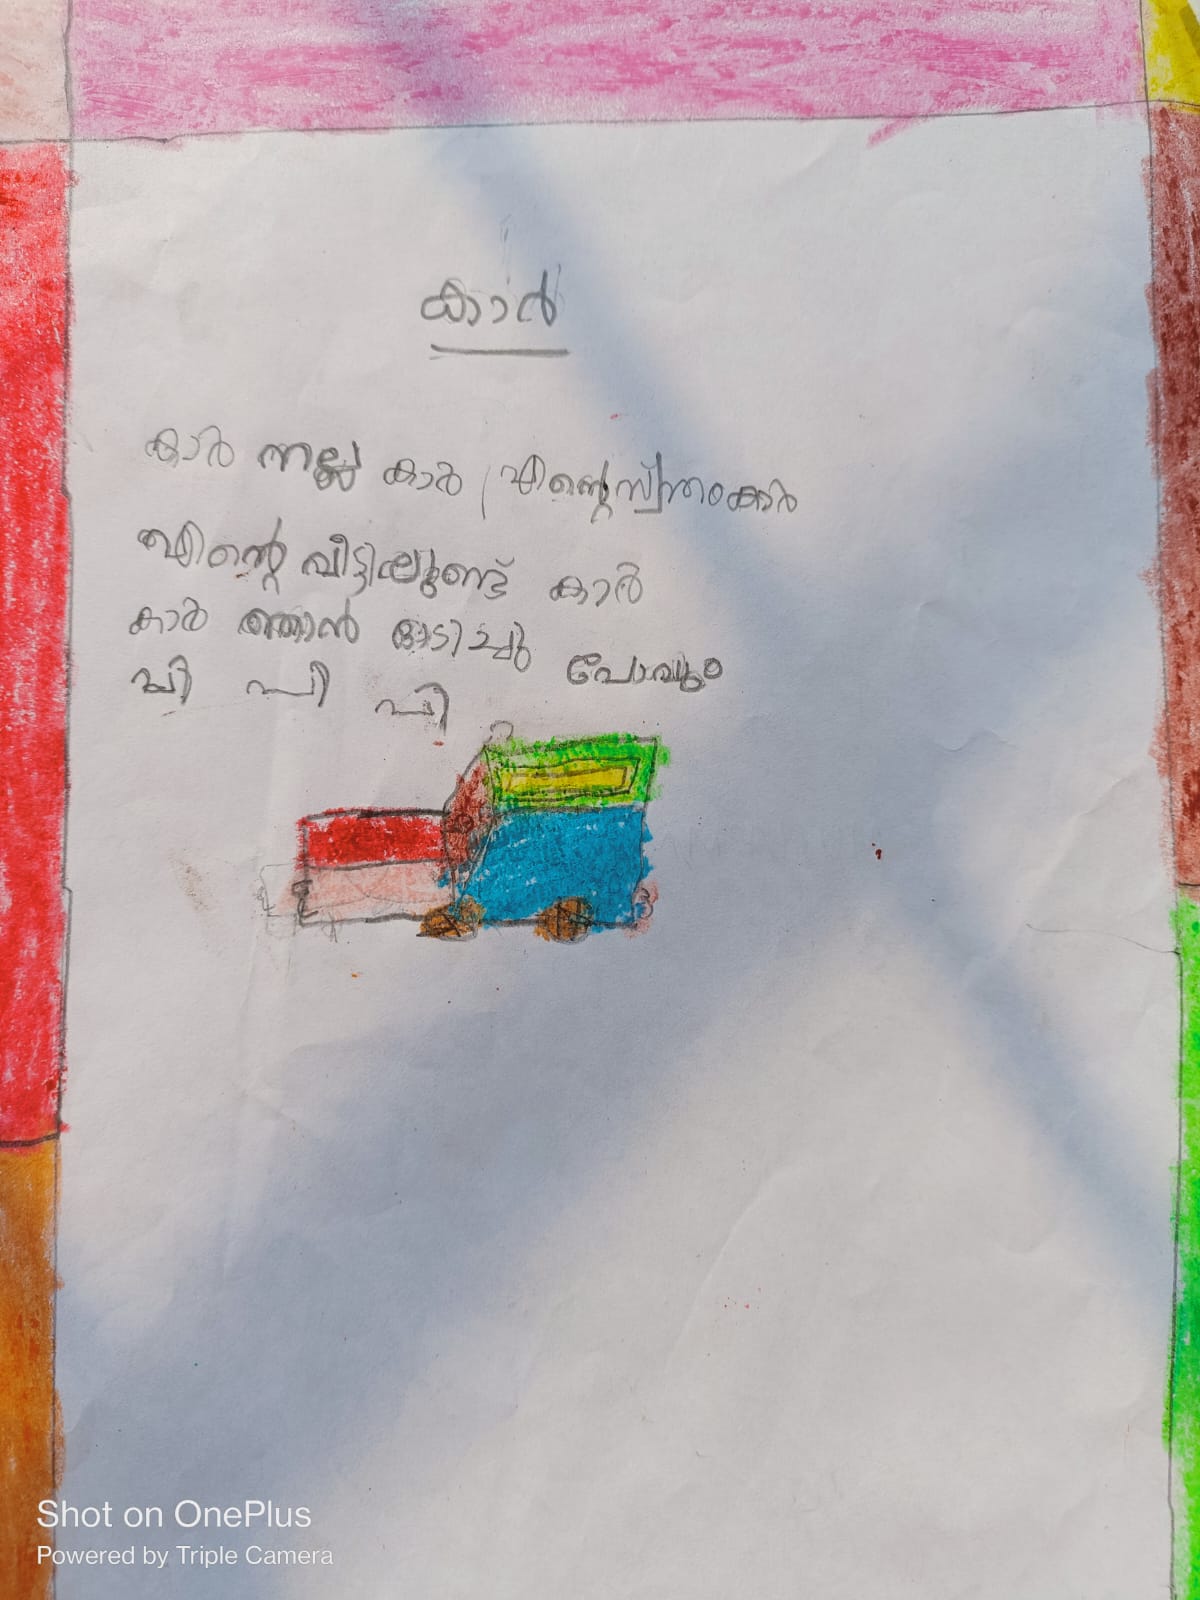 കാർ
കാർ നല്ല കാർ എന്റെ സ്വന്തം കാർ
എന്റെ വീട്ടിലുണ്ട് കാർ
കാർ ഞാൻ ഓടിച്ചു പോവും
പീ പീ പീ
Shot on OnePlus
Powered by Triple Camera